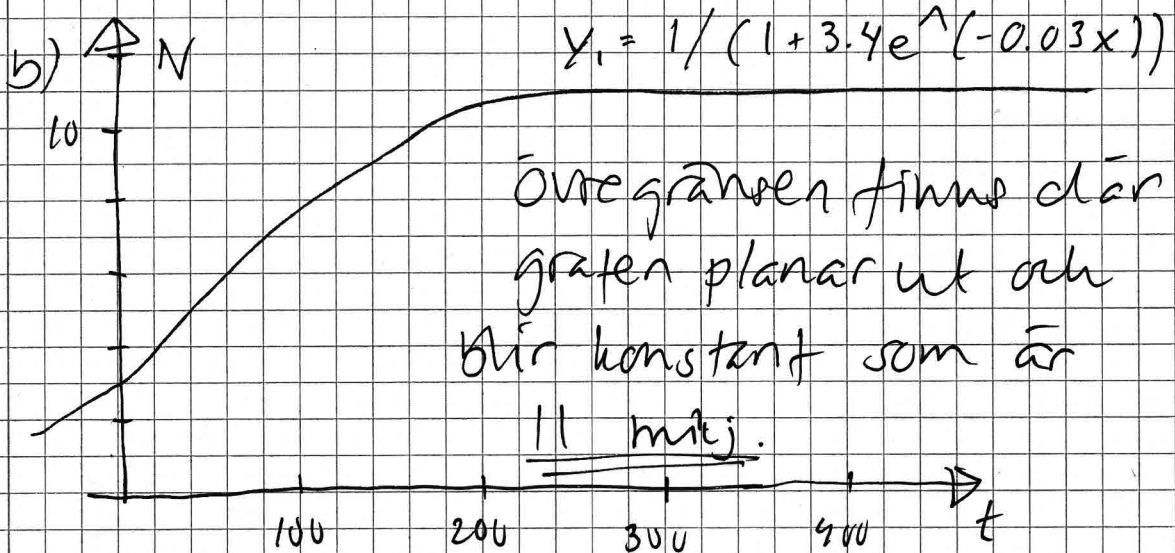 b)
N
y₁ = 1/(1+3.4e^(-0.03x))
10
övregränsen finns där
grafen planar ut och
blir konstant som är
11 miltj.
100 200 300 400
t